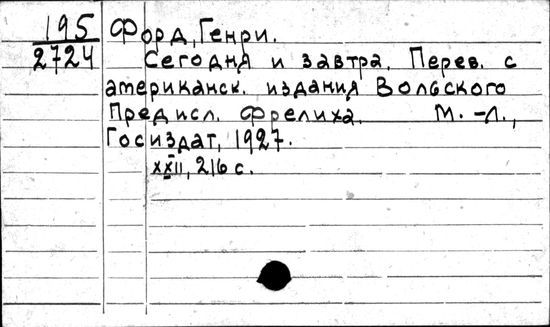 195
2724
Форд, Генри.
Сегодня и завтра. Перев. с
американск. издания Вольского
Предисл. Фрелиха. М.-Л.,
Госиздат, 1927.
XXII, 216 с.